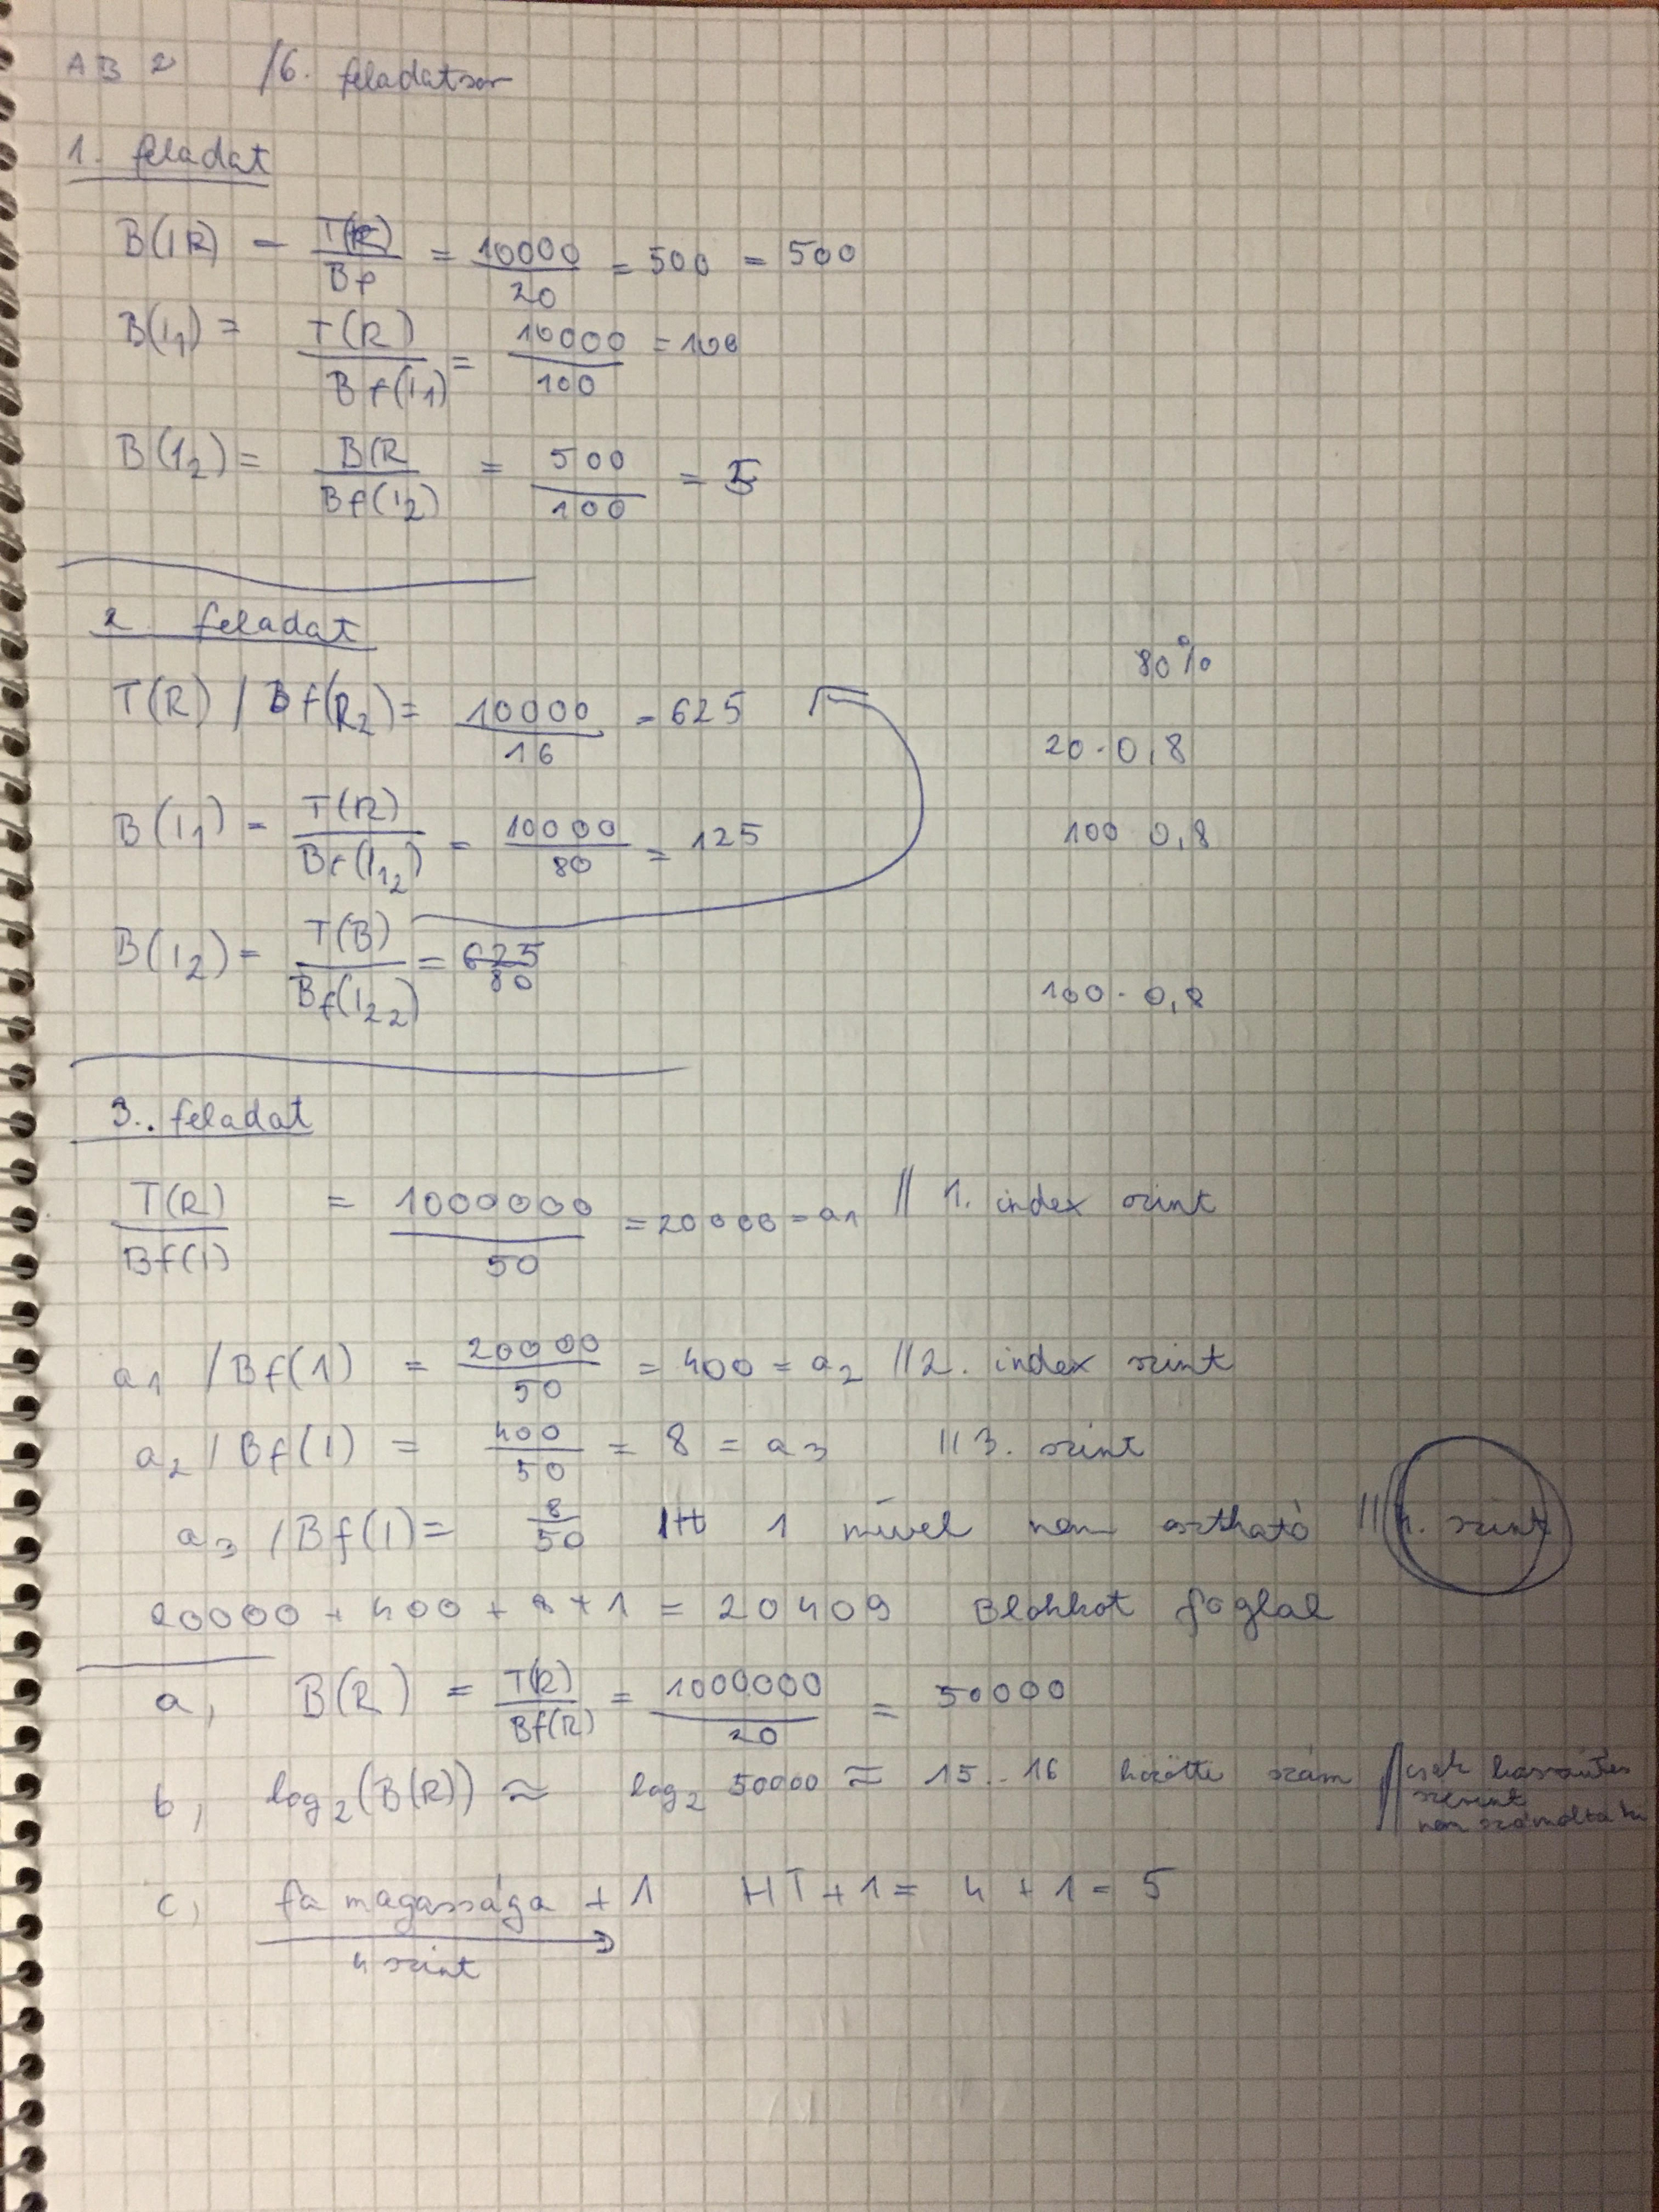 AB 2 /6. feladatsor
1. feladat
B(IR) - T(R)/Bf = 10000/20 = 500 = 500
B(I1) = T(R)/Bf(I1) = 10000/100 = 100
B(I2) = B(R/Bf(I2) = 500/100 = 5
2. feladat
80%
T(R) / Bf(R2) = 10000/16 = 625
20 · 0,8
B(I1) = T(R)/Bf(I12) = 10000/80 = 125
100 0,8
B(I2) = T(B)/Bf(I22) = 625/80
100 · 0,8
3.. feladat
T(R)/Bf(I) = 1000000/50 = 20000 = a1 // 1. index szint
a1 / Bf(1) = 20000/50 = 400 = a2 // 2. index szint
a2 / Bf(I) = 400/50 = 8 = a3 // 3. szint
a3 / Bf(I) = 8/50 itt 1 mivel nem osztható // 4. szint
20000 + 400 + 8 + 1 = 20409 Blokkot foglal
a, B(R) = T(R)/Bf(R) = 1000000/20 = 50000
b, log2(B(R)) ≈ log2 50000 ≈ 15..16 közötti szám // csak
szerint
nem
c, fa magassága + 1 HT + 1 = 4 + 1 = 5
4 szint